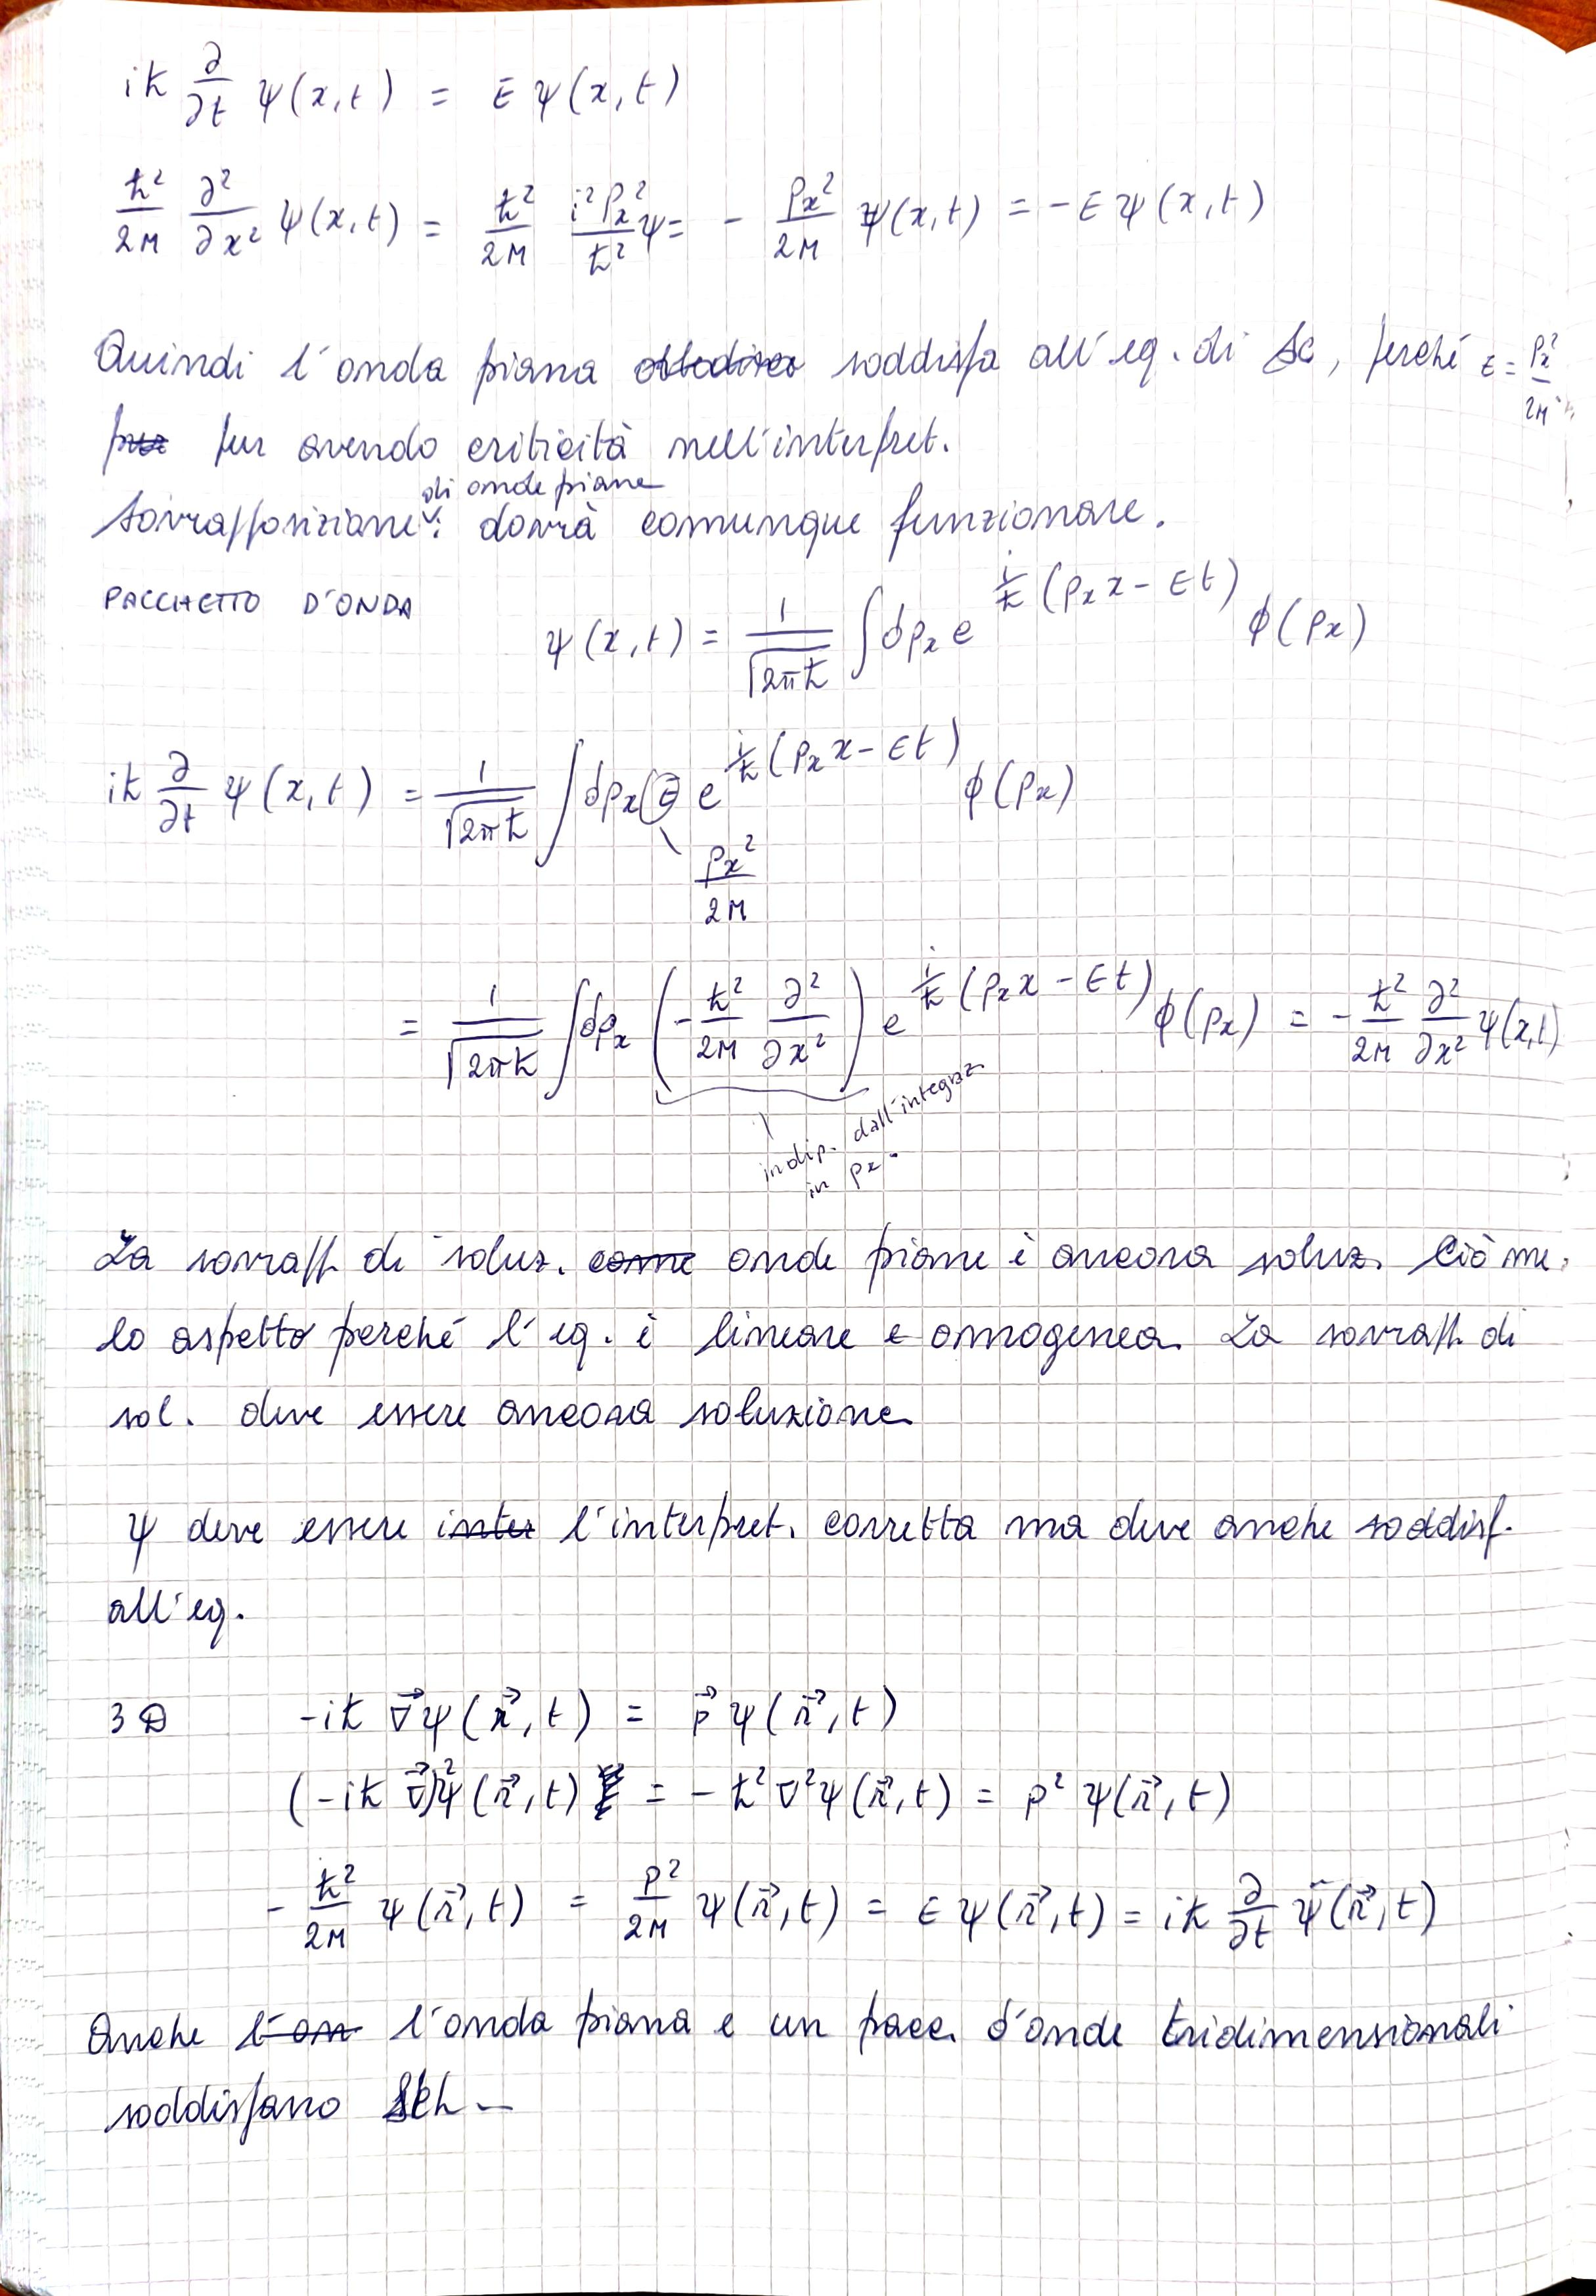 iħ ∂/∂t ψ(x,t) = E ψ(x,t)
ħ²/2M ∂²/∂x² ψ(x,t) = ħ²/2M i²Px²/ħ² ψ = - Px²/2M ψ(x,t) = -E ψ(x,t)
Quindi l'onda piana soddisfa all'eq. di Sc, perché E = Px²/2M
pur avendo criticità nell'interpret.
di onde piane
Sovrapposizione: dovrà comunque funzionare.
PACCHETTO D'ONDA
ψ(x,t) = 1/√2πħ ∫dpx e^{i/ħ (px x - Et)} ϕ(px)
iħ ∂/∂t ψ(x,t) = 1/√2πħ ∫dpx E e^{i/ħ (px x - Et)} ϕ(px)
px²/2M
= 1/√2πħ ∫dpx (-ħ²/2M ∂²/∂x²) e^{i/ħ (px x - Et)} ϕ(px) = - ħ²/2M ∂²/∂x² ψ(x,t)
indip. dall'integraz
in px.
La sovrapp. di soluz. come onde piane è ancora soluz. Ciò me
lo aspetto perché l'eq. è lineare e omogenea. La sovrapp. di
sol. deve essere ancora soluzione
ψ deve essere inter l'interpret. corretta ma deve anche soddisf.
all'eq.
3D -iħ ∇⃗ψ(r⃗,t) = p⃗ ψ(r⃗,t)
(-iħ ∇⃗)²ψ(r⃗,t) = -ħ²∇²ψ(r⃗,t) = p² ψ(r⃗,t)
- ħ²/2M ψ(r⃗,t) = P²/2M ψ(r⃗,t) = E ψ(r⃗,t) = iħ ∂/∂t ψ(r⃗,t)
Anche l'on l'onda piana e un pacc. d'onde tridimensionali
soddisfano Sch